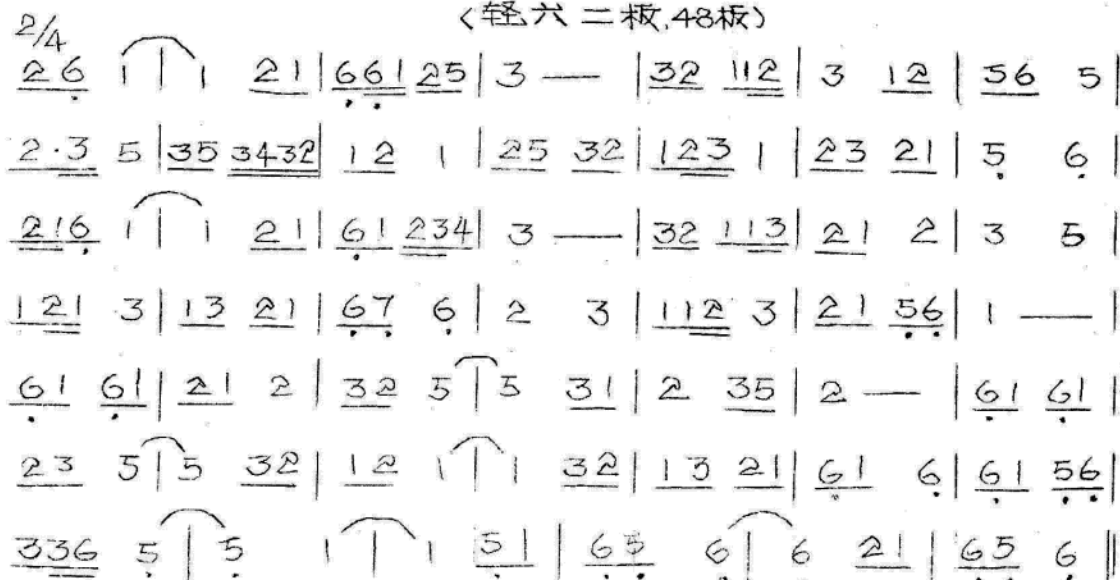 〈轻六二板,48板〉
2/4
26 1 | 1 21 | 661 25 | 3 — | 32 112 | 3 12 | 56 5 |
2·3 5 | 35 3432 | 12 1 | 25 32 | 123 1 | 23 21 | 5 6 |
216 1 | 1 21 | 61 234 | 3 — | 32 113 | 21 2 | 3 5 |
121 3 | 13 21 | 67 6 | 2 3 | 112 3 | 21 56 | 1 — |
61 61 | 21 2 | 32 5 | 5 31 | 2 35 | 2 — | 61 61 |
23 5 | 5 32 | 12 1 | 1 32 | 13 21 | 61 6 | 61 56 |
336 5 | 5 1 | 1 51 | 65 6 | 6 21 | 65 6 ‖